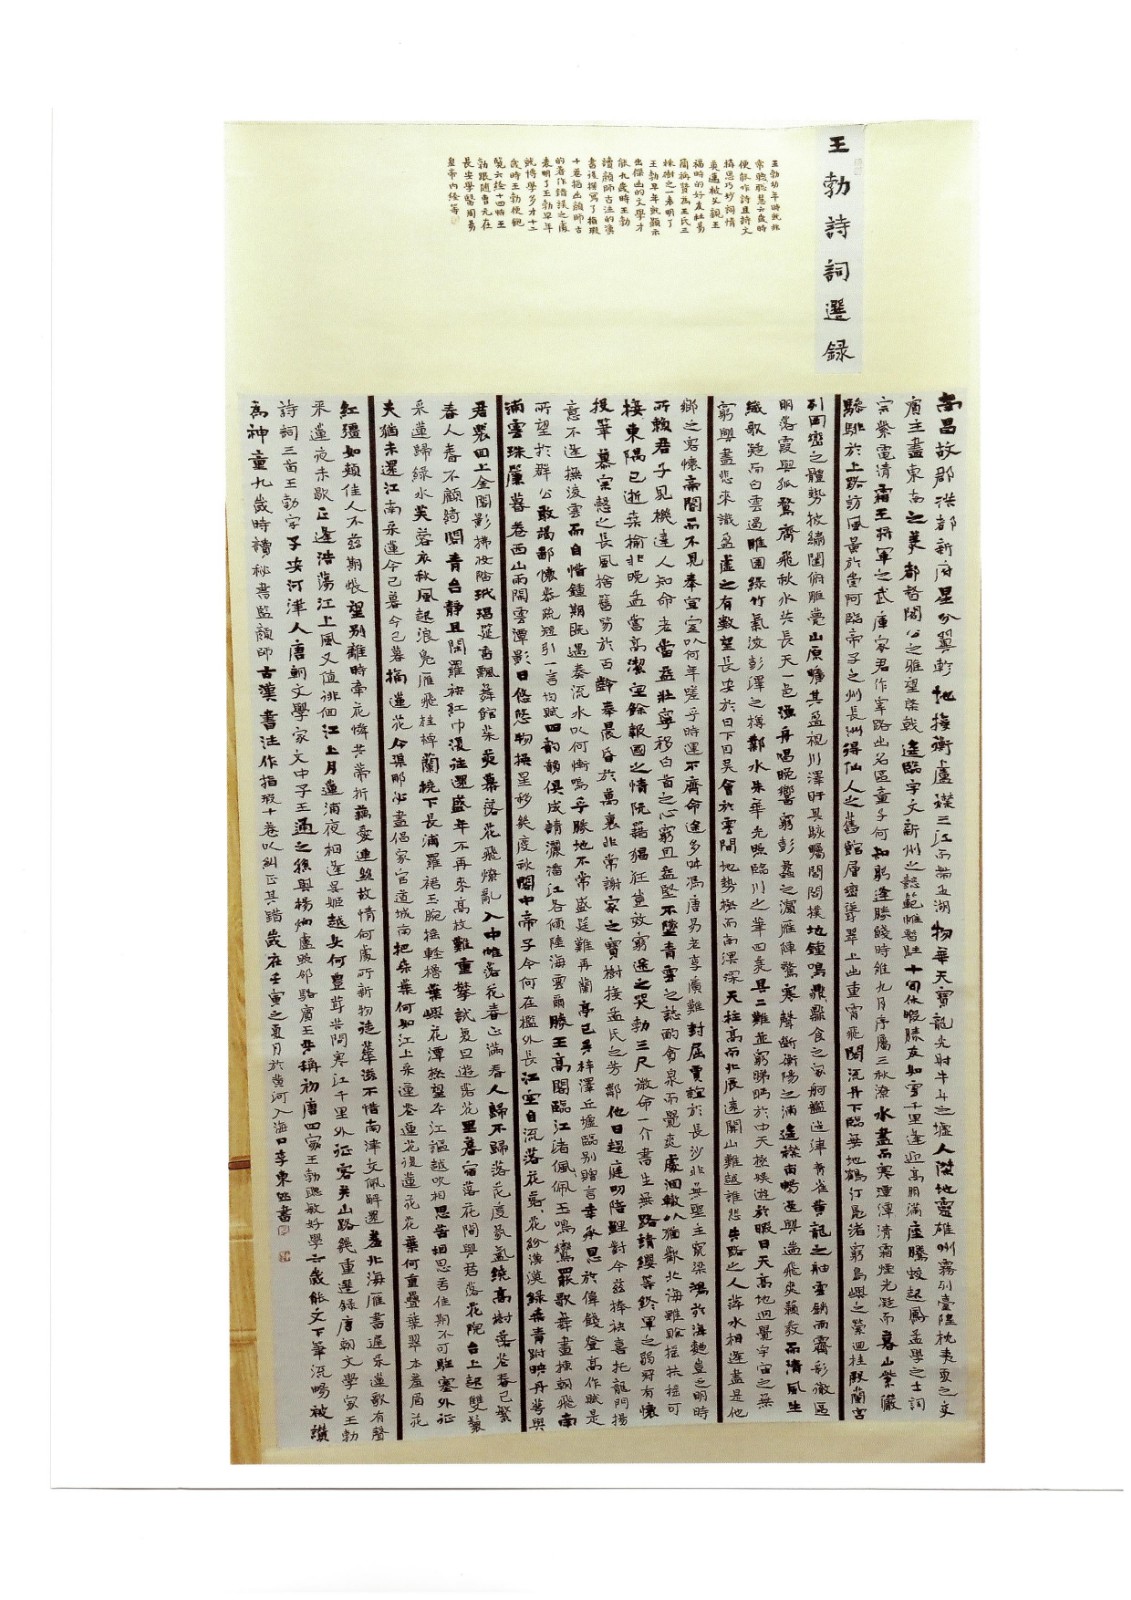 王勃詩詞選録
王勃幼年時就非
常聰聪慧六歲時
便能作詩且詩文
構思巧妙詞情
英邁被父親王
福時的好友杜易
簡稱贊為王氏三
株樹之一表明了
王勃早年就顯示
出傑出的文學才
能九歲時王勃
讀顏師古注的漢
書後撰寫了指瑕
十卷指出顏師古
的著作錯誤之處
表明了王勃早年
就博學多才十二
歲時王勃便觀
覽六經十四時王
勃跟隨曹元在
長安學醫周易
皇帝內經等
南昌故郡洪都新府星分翼軫地接衡廬襟三江而帶五湖物華天寶龍光射牛斗之墟人傑地靈雄州霧列臺隍枕夷夏之交
賓主盡東南之美都督閻公之雅望棨戟遙臨宇文新州之懿範帷暫駐十旬休暇勝友如雲千里逢迎高朋滿座騰蛟起鳳孟學之士詞
宗紫電清霜王將軍之武庫家君作宰路出名區童子何知躬逢勝餞時維九月序屬三秋潦水盡而寒潭潭清霜煙光凝而暮山紫儼
驂騑於上路訪風景於崇阿臨帝子之州長洲得仙人之舊館層巒聳翠上出重霄飛閣流丹下臨無地鶴汀鳧渚窮島嶼之縈迴桂殿蘭宮
列岡巒之體勢披繡闥俯雕甍山原曠其盈視川澤盱其駭矚閭閻撲地鐘鳴鼎食之家舸艦迷津青雀黃龍之舳雲銷雨霽彩徹區
明落霞與孤鶩齊飛秋水共長天一色漁舟唱晚響窮彭蠡之濱雁陣驚寒聲斷衡陽之浦遙襟甫暢逸興遄飛爽籟發而清風生
纖歌凝而白雲遏睢園綠竹氣淩彭澤之樽鄴水朱華光照臨川之筆四美具二難並窮睇眄於中天極娛遊於暇日天高地迥覺宇宙之無
窮興盡悲來識盈虛之有數望長安於日下目吳會於雲間地勢極而南溟深天柱高而北辰遠關山難越誰悲失路之人萍水相逢盡是他
鄉之客懷帝閽而不見奉宣室以何年嗟乎時運不齊命途多舛馮唐易老李廣難封屈賈誼於長沙非無聖主竄梁鴻於海曲豈乏明時
所賴君子見機達人知命老當益壯寧移白首之心窮且益堅不墜青雲之志酌貪泉而覺爽處涸轍以猶歡北海雖賒扶搖可
接東隅已逝桑榆非晚孟嘗高潔空餘報國之情阮籍猖狂豈效窮途之哭勃三尺微命一介書生無路請纓等終軍之弱冠有懷
投筆慕宗慤之長風捨簪笏於百齡奉晨昏於萬裏非常謝家之寶樹接孟氏之芳鄰他日趨庭叨陪鯉對今茲捧袂喜托龍門揚
意不逢撫淩雲而自惜鍾期既遇奏流水以何慚嗚乎勝地不常盛筵難再蘭亭已矣梓澤丘墟臨別贈言幸承恩於偉餞登高作賦是
所望於群公敢竭鄙懷恭疏短引一言均賦四韵韻俱成請灑潘江各傾陸海雲爾滕王高閣臨江渚佩佩玉鳴鸞罷歌舞畫棟朝飛南
浦雲珠簾暮卷西山雨閒雲潭影日悠悠物換星移幾度秋閣中帝子今何在檻外長江空自流落花落花紛漠漠綠葉青跗映丹萼與
君裴回上金閣影拂妝階玳瑁筵香飄舞館茱萸幕落花飛燎亂入中帷落花春正滿春人歸不歸落花度氛氳繞高樹落花春已繁
春人春不顧綺閣青台靜且閒羅袂紅巾復往還盛年不再來高枝難重攀試復旦遊落花里暮宿落花間與君落花院台上起雙鬟
采蓮歸綠水芙蓉衣秋風起浪鳧雁飛桂棹蘭橈下長浦羅裙玉腕搖輕櫓葉嶼花潭極望平江謳越吹相思苦相思苦佳期不可駐塞外征
夫猶未還江南采蓮今已暮今已暮摘蓮花今渠那必盡倡家官道城南把桑葉何如江上采蓮花蓮花復蓮花花葉何重疊葉翠本羞眉花
紅彊如頰佳人不茲期悵望別離時牽花憐共蒂折藕愛連絲故情何處所新物徒華滋不惜南津交佩解還羞北海雁書遲采蓮歌有聲
采蓮夜未歇正逢浩蕩江上風又值徘徊江上月蓮浦夜相逢吳姬越女何豐茸共問寒江千里外征客關山路幾重選録唐朝文學家王勃
詩詞三首王勃字子安河津人唐朝文學家文中子王通之孫與楊炯盧照鄰駱賓王并稱初唐四家王勃聰敏好學六歲能文下筆流暢被讚
為神童九歲時讀秘書監顏師古漢書注作指瑕十卷以糾正其錯歲在壬寅之夏月於黃河入海口李東書